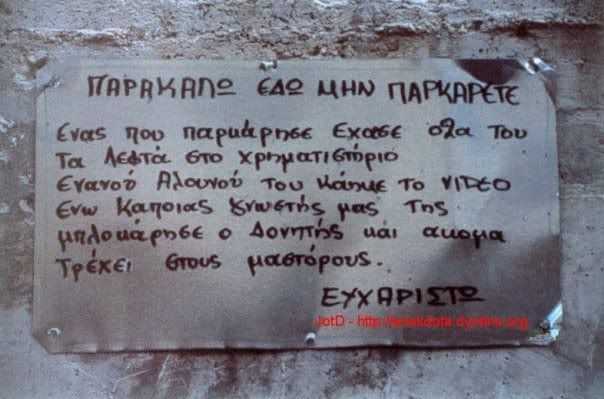 ΠΑΡΑΚΑΛΩ ΕΔΩ ΜΗΝ ΠΑΡΚΑΡΕΤΕ
Ενας που παρκάρησε Εχασε ολα του
Τα Λεφτά στο χρηματιστήριο
Ενανού Αλουνού του κάηκε το VIDEO
Ενω Καποιας γνωστής μας της
μπλοκάρησε ο Δονητής και ακομα
Τρέχει στους μαστόρους.
ΕΥΧΑΡΙΣΤΩ
JotD - http://anekdota.dyndns.org